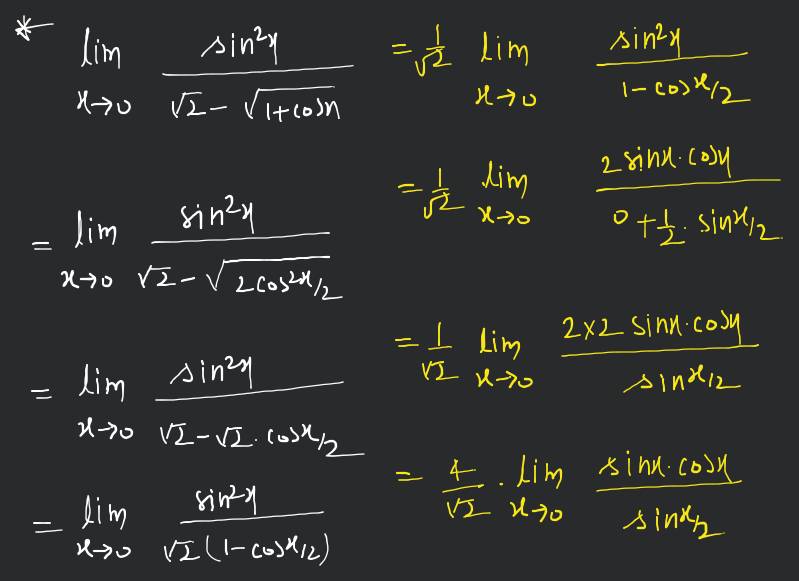 * lim x→0 sin²x / (√2 − √(1+cosx))
= lim x→0 sin²x / (√2 − √(2cos²x/2))
= lim x→0 sin²x / (√2 − √2 . cosx/2)
= lim x→0 sin²x / (√2(1−cosx/2))
= 1/√2 lim x→0 sin²x / (1−cosx/2)
= 1/√2 lim x→0 2 sinx.cosx / (0 + 1/2 . sinx/2)
= 1/√2 lim x→0 2x2 sinx.cosx / sinx/2
= 4/√2 . lim x→0 sinx.cosx / sinx/2